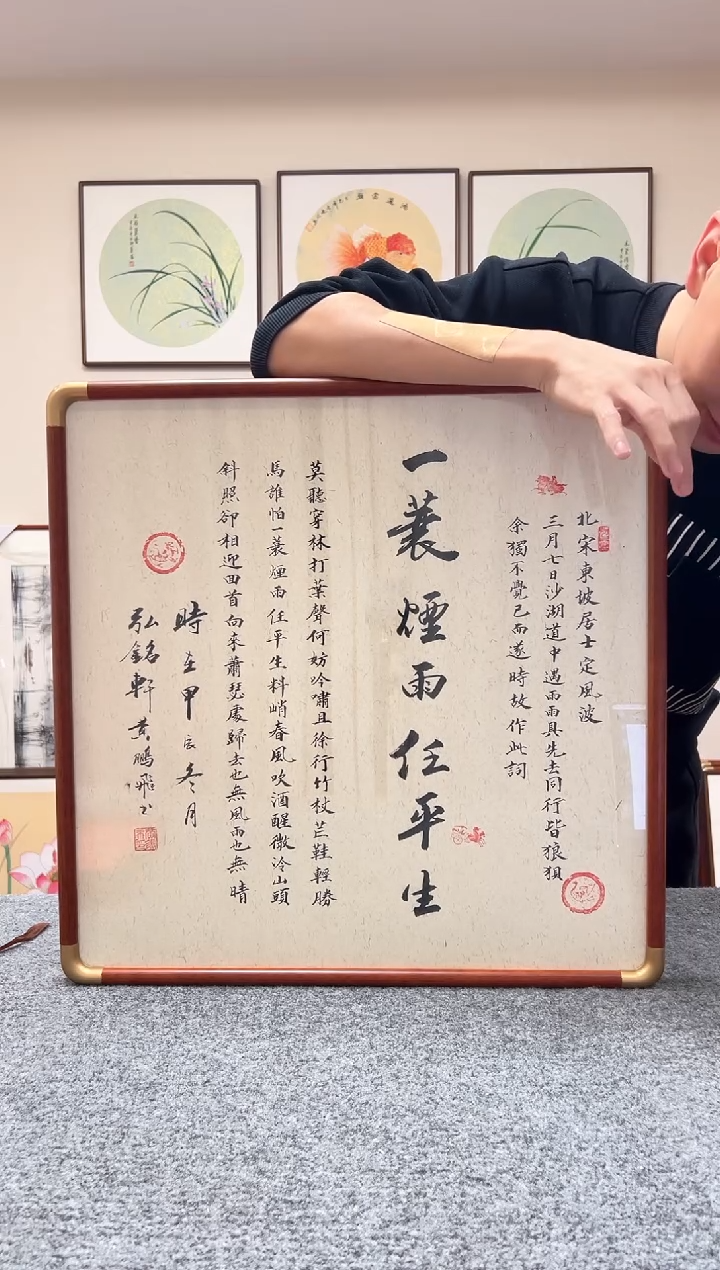 北宋東坡居士定風波
三月七日沙湖道中遇雨雨具先去同行皆狼狽
余獨不覺已而遂晴故作此詞
一蓑煙雨任平生
莫聽穿林打葉聲何妨吟嘯且徐行竹杖芒鞋輕勝
馬誰怕一蓑煙雨任平生料峭春風吹酒醒微冷山頭
斜照卻相迎回首向來蕭瑟處歸去也無風雨也無晴
時在甲辰冬月
弘銘軒黃鵬飛書